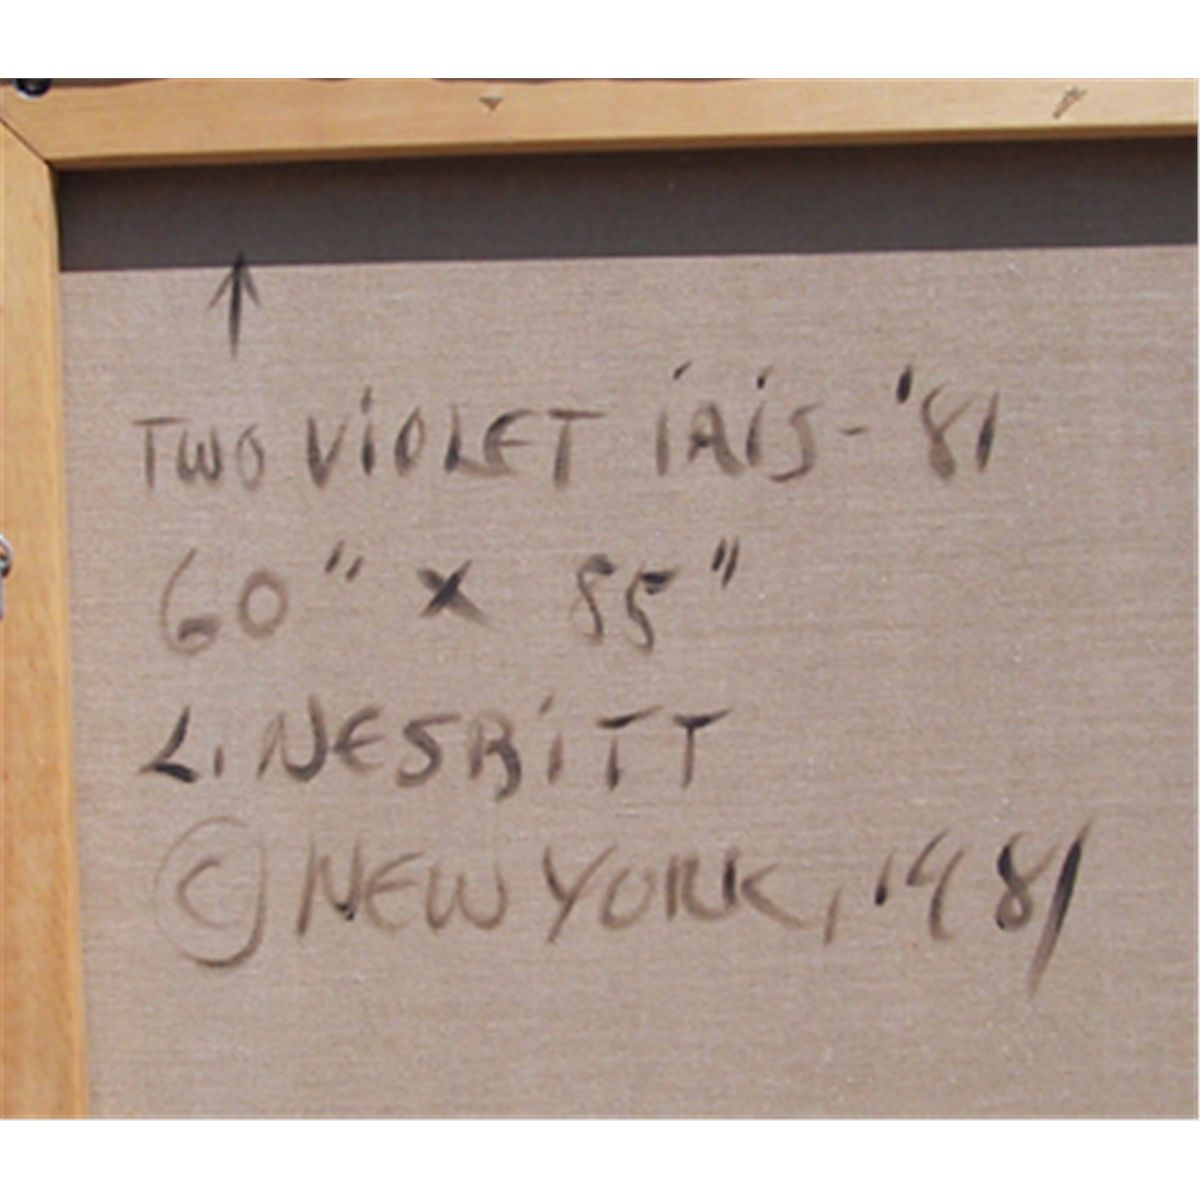 TWO ViOLET iRiS - '81
60" x 85"
L. NESBiTT
© NEW YORK, 1981